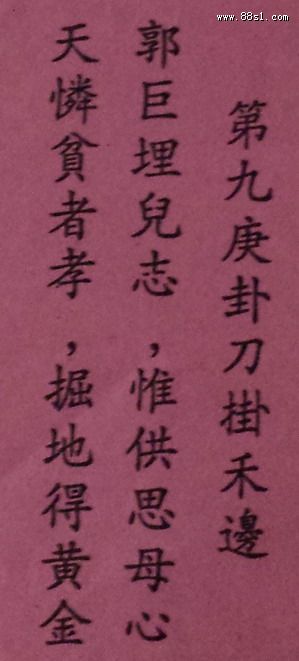 www.88s1.com
第九庚卦刀掛禾邊
郭巨埋兒志，惟供思母心
天憐貧者孝，掘地得黃金